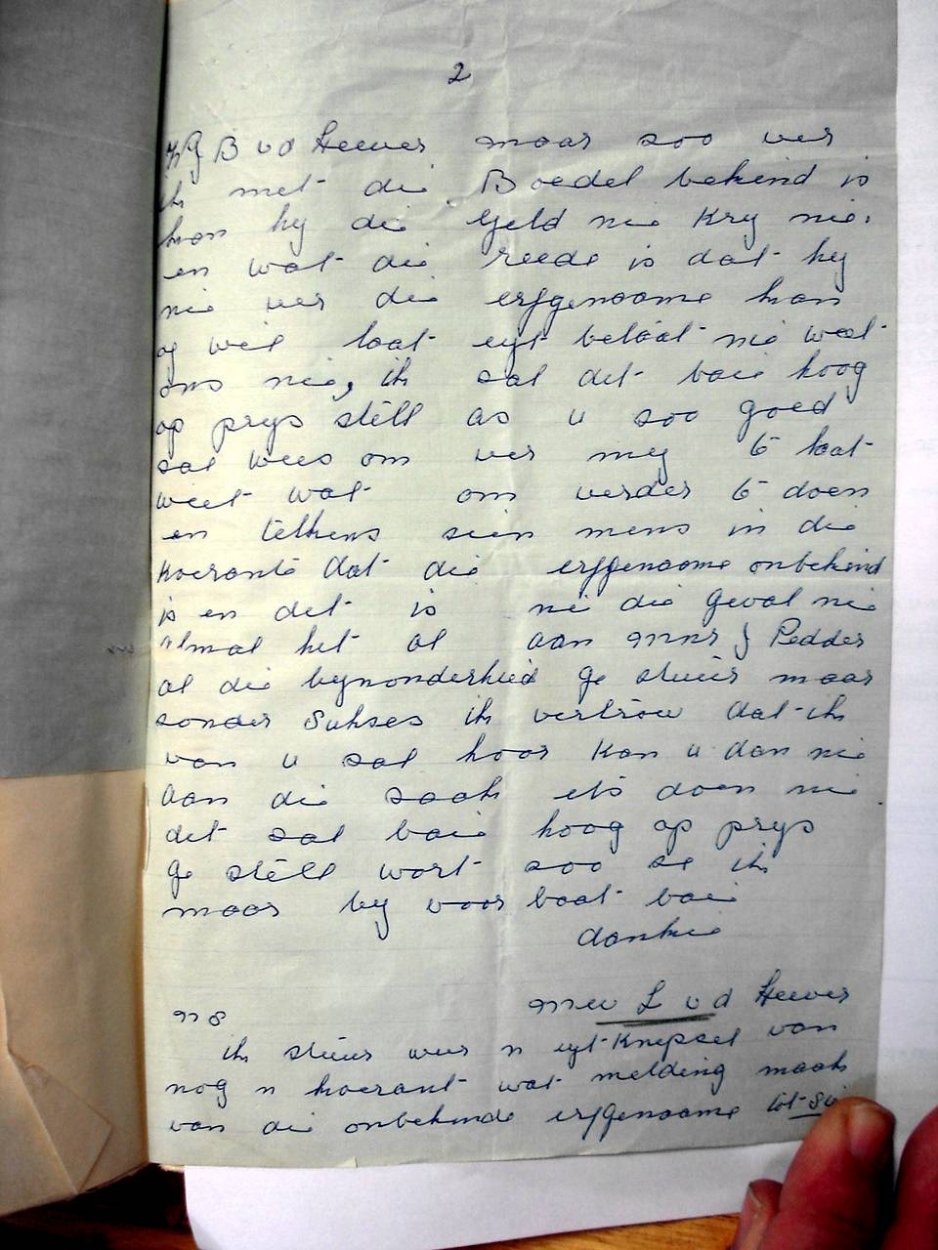 2
B v d Heever maar soo ver
ik met die Boedel bekend is
kan hy die geld nie kry nie.
en wat die reede is dat hy
nie ver die erfgenaame kan
of wil laat eyt betaal nie weet
ons nie, ik sal det baie hoog
op prys stell as u soo goed
sal wees om ver my te laat
weet wat om verder te doen
en telkens sien mens in die
koerante dat die erfgenaame onbekend
is en det is nie die geval nie
almal het al aan mnr J Pedder
al die bynonderhied ge stuur maar
sonder sukses ik vertrou dat ik
van u sal hoor kan u dan nie
aan die saak iets doen nie
det sal baie hoog op prys
ge stell wort soo se ik
maar by voor baat baie
dankie
mev L v d Heever
n s
ik stuur weer n eyt Knepsel van
nog n koerant wat melding maak
van die onbekende erfgenaame tot